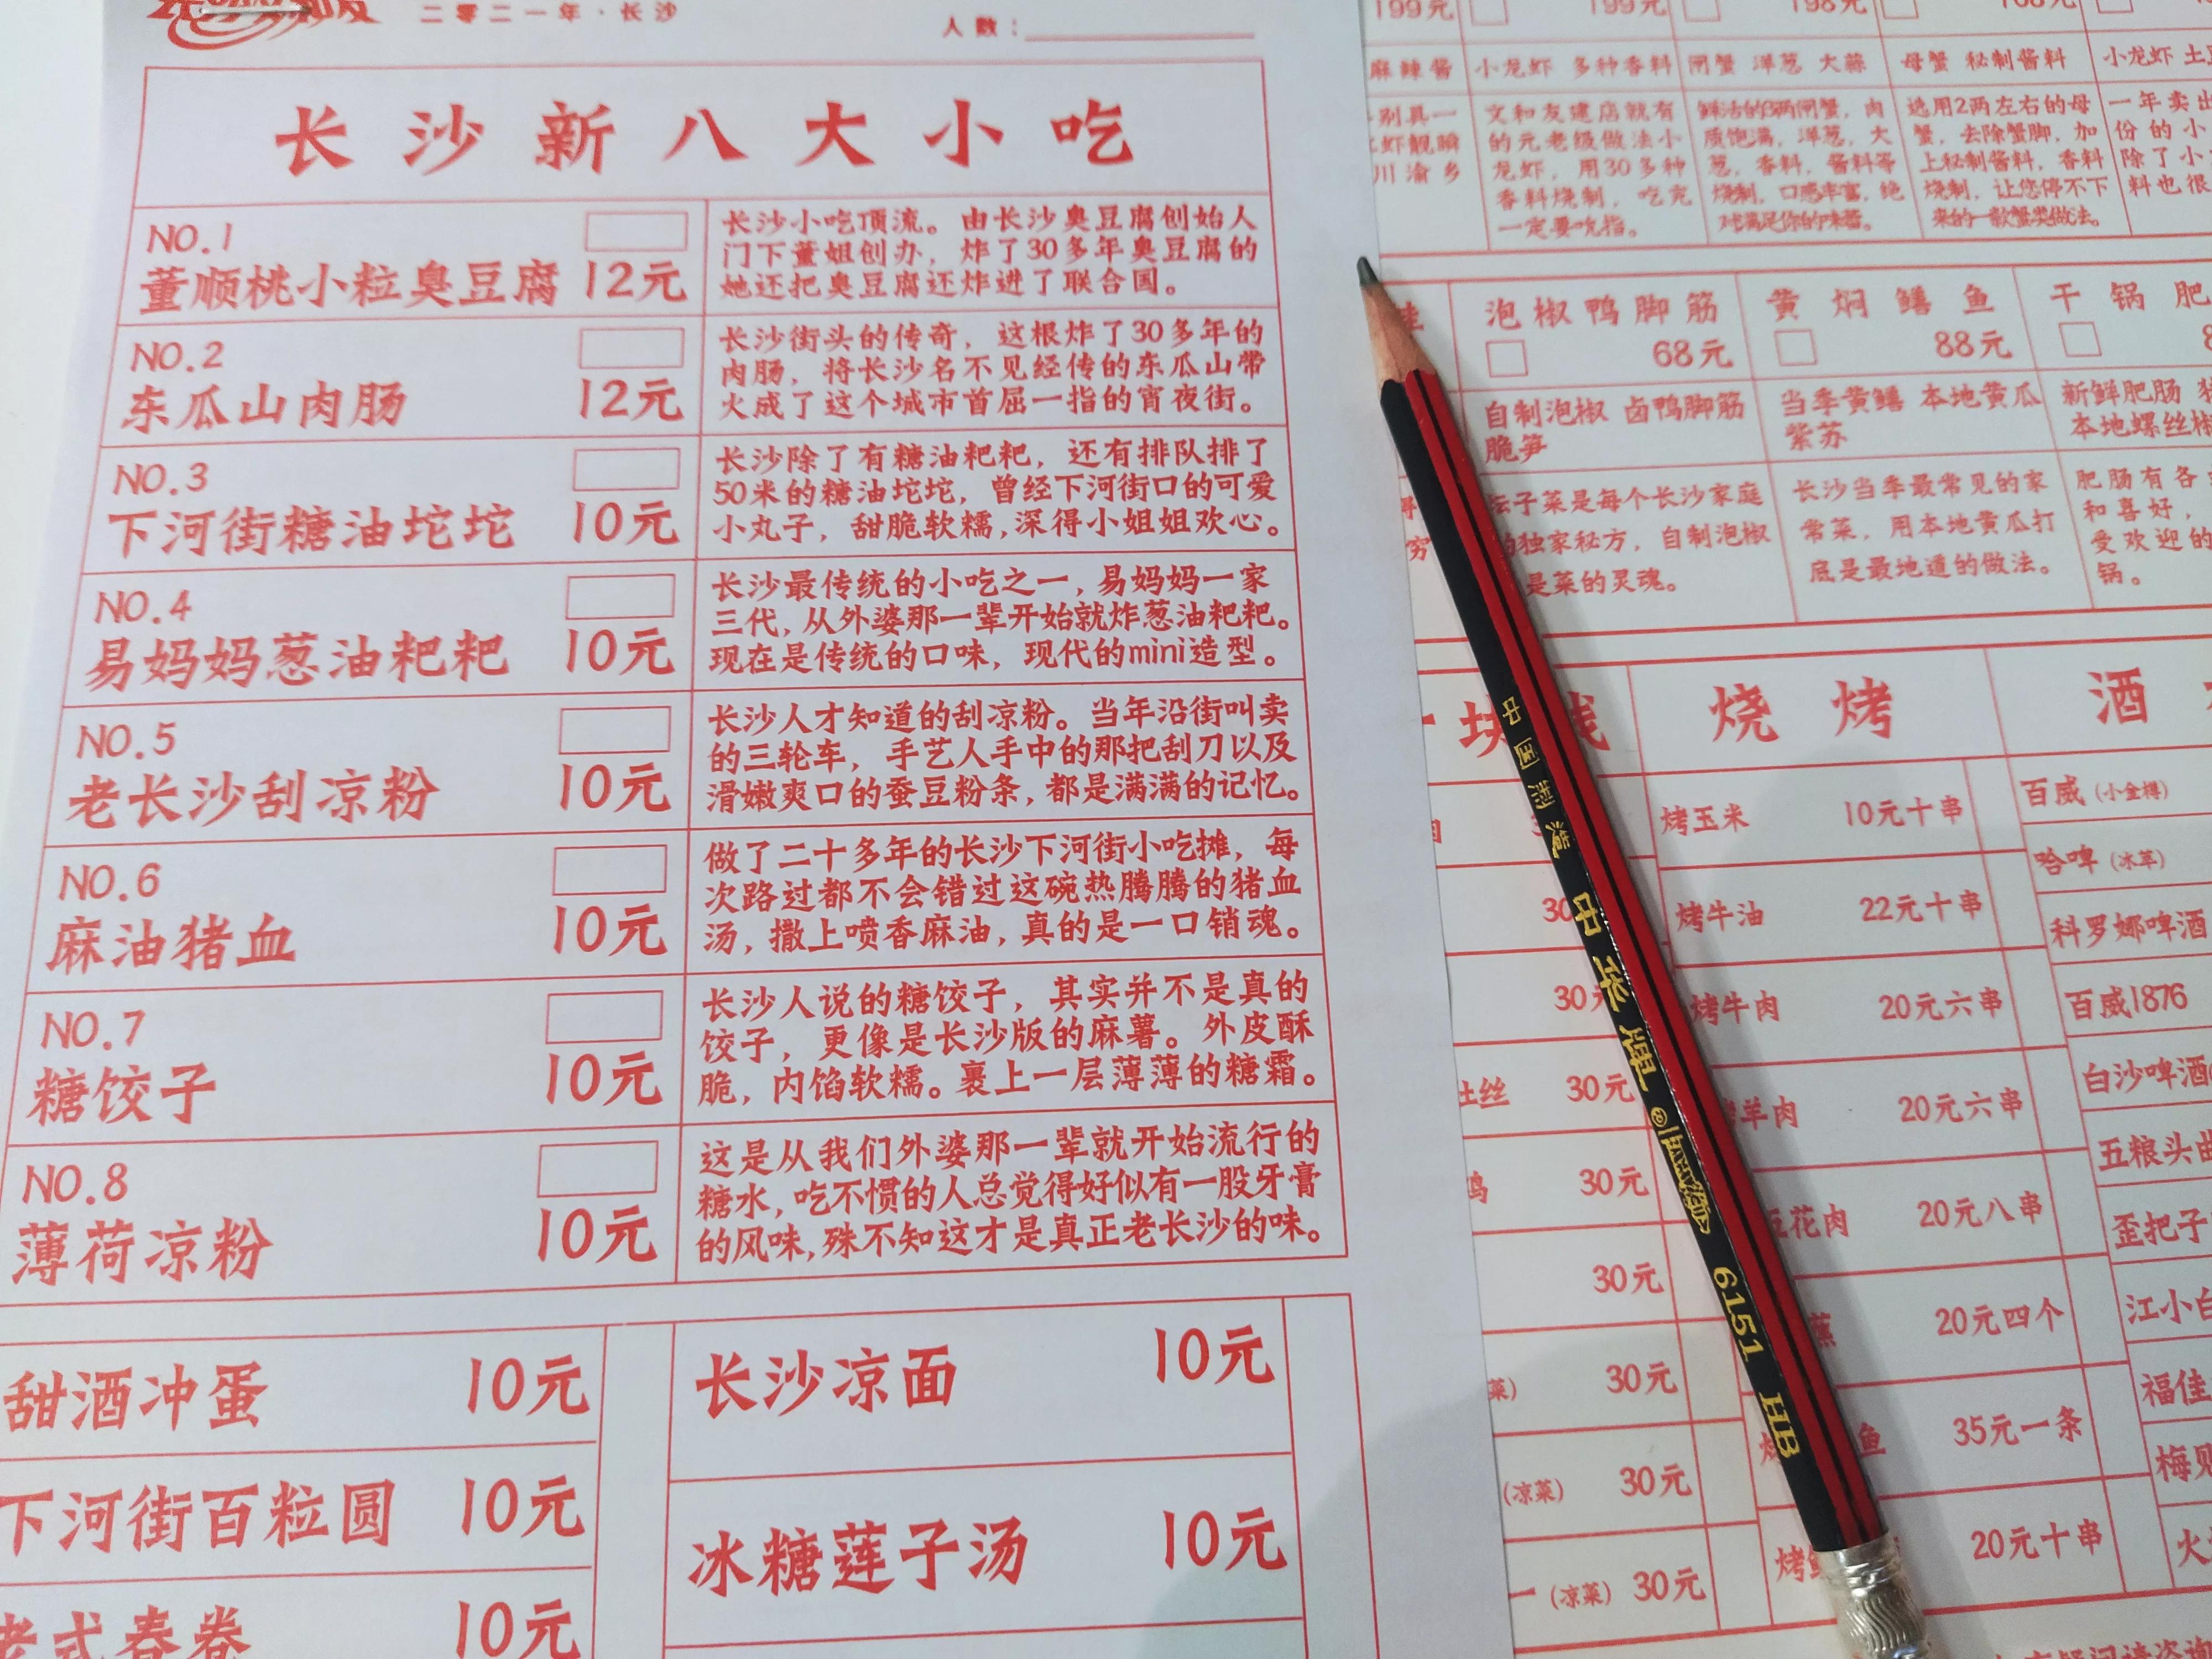 二零二一年·长沙
人数：
长沙新八大小吃
NO.1
董顺桃小粒臭豆腐 12元
长沙小吃顶流。由长沙臭豆腐创始人
门下董姐创办，炸了30多年臭豆腐的
她还把臭豆腐还炸进了联合国。
NO.2
东瓜山肉肠 12元
长沙街头的传奇，这根炸了30多年的
肉肠，将长沙名不见经传的东瓜山带
火成了这个城市首屈一指的宵夜街。
NO.3
下河街糖油坨坨 10元
长沙除了有糖油粑粑，还有排队排了
50米的糖油坨坨，曾经下河街口的可爱
小丸子，甜脆软糯，深得小姐姐欢心。
NO.4
易妈妈葱油粑粑 10元
长沙最传统的小吃之一，易妈妈一家
三代，从外婆那一辈开始就炸葱油粑粑。
现在是传统的口味，现代的mini造型。
NO.5
老长沙刮凉粉 10元
长沙人才知道的刮凉粉。当年沿街叫卖
的三轮车，手艺人手中的那把刮刀以及
滑嫩爽口的蚕豆粉条，都是满满的记忆。
NO.6
麻油猪血 10元
做了二十多年的长沙下河街小吃摊，每
次路过都不会错过这碗热腾腾的猪血
汤，撒上喷香麻油，真的是一口销魂。
NO.7
糖饺子 10元
长沙人说的糖饺子，其实并不是真的
饺子，更像是长沙版的麻薯。外皮酥
脆，内馅软糯。裹上一层薄薄的糖霜。
NO.8
薄荷凉粉 10元
这是从我们外婆那一辈就开始流行的
糖水，吃不惯的人总觉得好似有一股牙膏
的风味，殊不知这才是真正老长沙的味。
甜酒冲蛋 10元
下河街百粒圆 10元
老式春卷 10元
长沙凉面 10元
冰糖莲子汤 10元
199元 199元 198元
麻辣酱
别具一
虾靓瞬
川渝乡
小龙虾 多种香料
文和友建店就有
的元老级做法小
龙虾，用30多种
香料烧制，吃完
一定要吮指。
闸蟹 洋葱 大蒜
鲜活的3两闸蟹，肉
质饱满，洋葱，大
葱，香料，酱料等
烧制，口感丰富，绝
对满足你的味蕾。
母蟹 秘制酱料
选用2两左右的母
蟹，去除蟹脚，加
上秘制酱料，香料
烧制，让您停不下
来的一款蟹类做法。
小龙虾 土
一年卖出
份的小
除了小
料也很
泡椒鸭脚筋
68元
自制泡椒 卤鸭脚筋
脆笋
坛子菜是每个长沙家庭
的独家秘方，自制泡椒
是菜的灵魂。
黄焖鳝鱼
88元
当季黄鳝 本地黄瓜
紫苏
长沙当季最常见的家
常菜，用本地黄瓜打
底是最地道的做法。
干锅肥
新鲜肥肠
本地螺丝椒
肥肠有各
和喜好，
受欢迎的
锅。
30元
丝 30元
鸡 30元
30元
菜） 30元
（凉菜） 30元
（凉菜） 30元
烧烤
烤玉米 10元十串
烤牛油 22元十串
烤牛肉 20元六串
羊肉 20元六串
五花肉 20元八串
蕉 20元四个
鱼 35元一条
烤 20元十串
酒
百威（小金樽）
哈啤（冰萃）
科罗娜啤酒
百威1876
白沙啤酒
五粮头曲
歪把子
江小白
福佳
梅
火
中国制造 中华牌 6151 HB